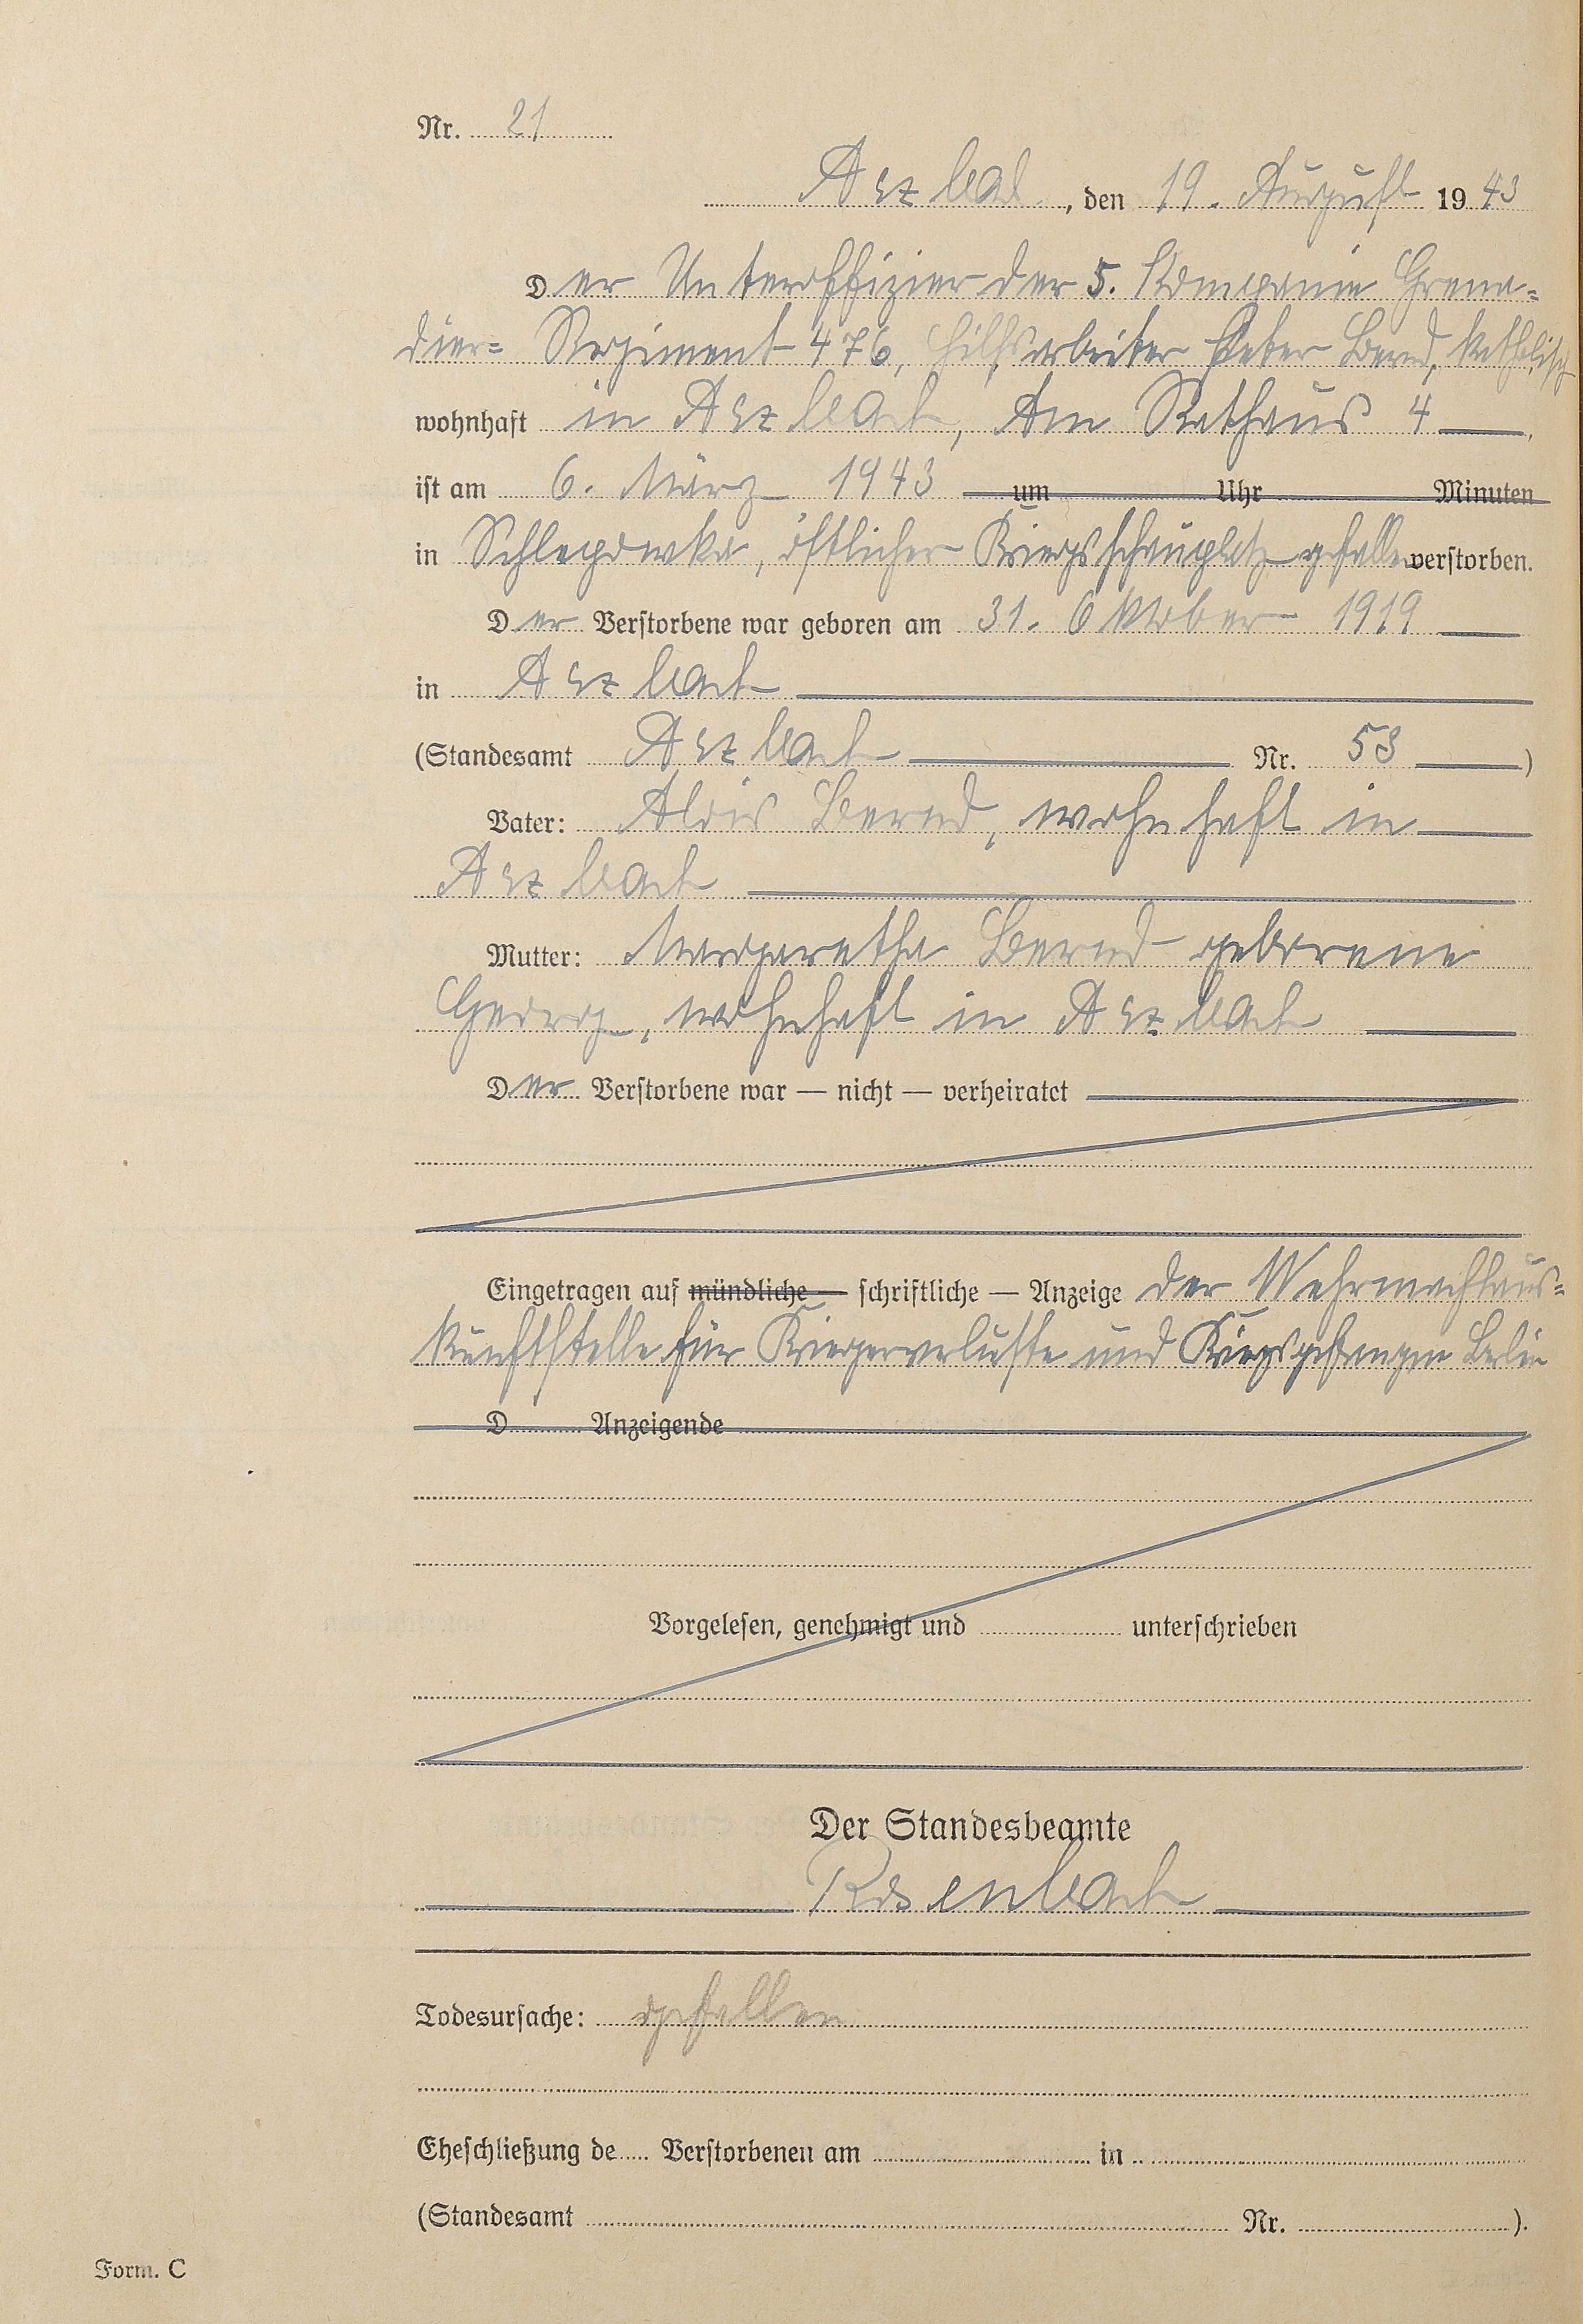 Nr. 21
Arzbach, den 19. August 1943
Der Unteroffizier der 5. Kompanie Grena=
dier= Regiment 476, Hilfsarbeiter Peter Bernd, katholisch
wohnhaft in Arzbach, Am Rathaus 4
ist am 6. März 1943 um Uhr Minuten
in Schlepowka, östlicher Kriegsschauplatz gefallen verstorben.
Der Verstorbene war geboren am 31. Oktober 1919
in Arzbach
(Standesamt Arzbach Nr. 53)
Vater: Alois Bernd, wohnhaft in
Arzbach
Mutter: Margaretha Bernd geborene
Georg, wohnhaft in Arzbach
Der Verstorbene war — nicht — verheiratet
Eingetragen auf mündliche — schriftliche — Anzeige der Wehrmachtaus=
kunftstelle für Kriegerverluste und Kriegsgefangene Berlin
D Anzeigende
Vorgelesen, genehmigt und unterschrieben
Der Standesbeamte
Rosenbach
Todesursache: gefallen
Eheschließung de Verstorbenen am in
(Standesamt Nr. ).
Form. C